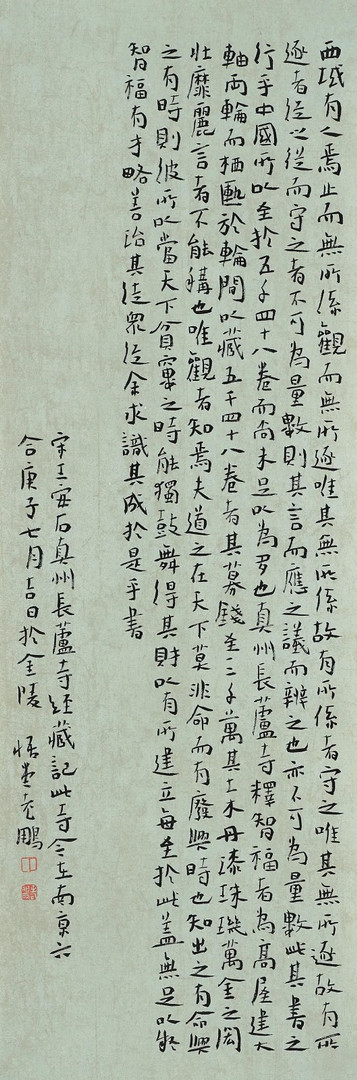 西域有人焉止而無所係觀而無所逐唯其無所係故有所係者守之唯其無所逐故有所
逐者從之從而守之者不可為量數則其言而應之議而辯之也亦不可為量數此其書之
行乎中國所以至於五千四十八卷而尚未足以為多也真州長蘆寺釋智福者為高屋建大
軸兩輪而栖匭於輪間以藏五千四十八卷者其募錢至三千萬其土木丹漆珠璣萬金之閎
壯靡麗言者不能稱也唯觀者知焉夫道之在天下莫非命而有廢興時也知出之有命興
之有時則彼所以當天下貧窶之時能獨鼓舞得其財以有所建立每至於此蓋無足以疑
智福有才略善治其徒眾從余求識其成於是乎書
宋王安石真州長蘆寺經藏記此寺今在南京六
合庚子七月吉日於金陵 悟堂 鵬